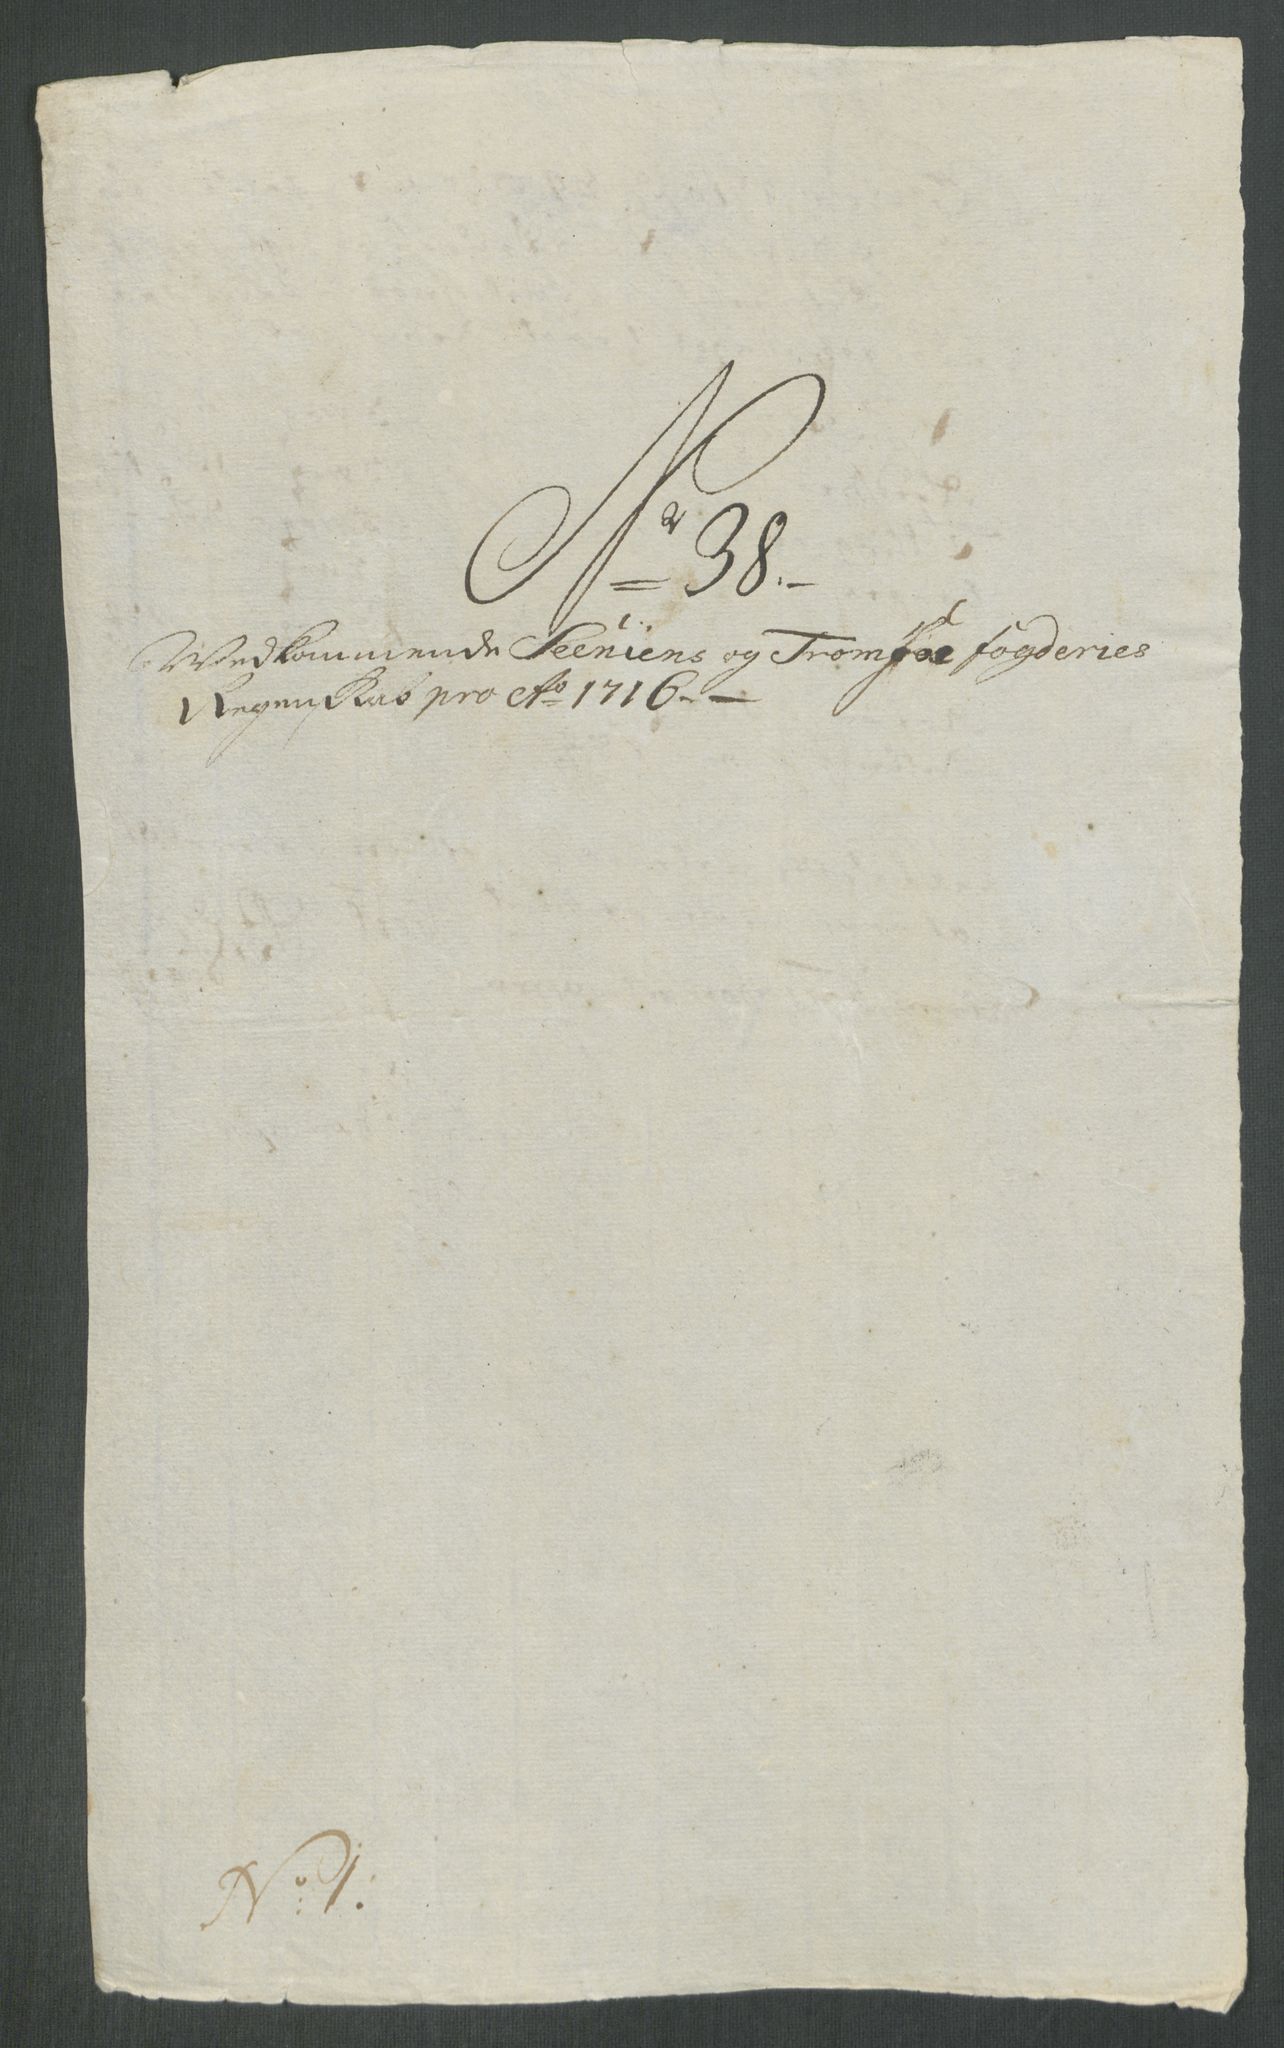 Nr 38.
Wedkommende Seeniens og Tromsøe fogderies
Regenskab pro Ao 1716.
No. 1.